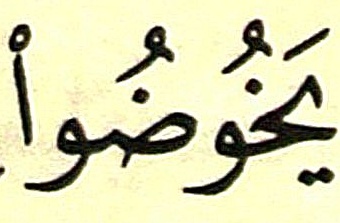 يَخُوضُواْ